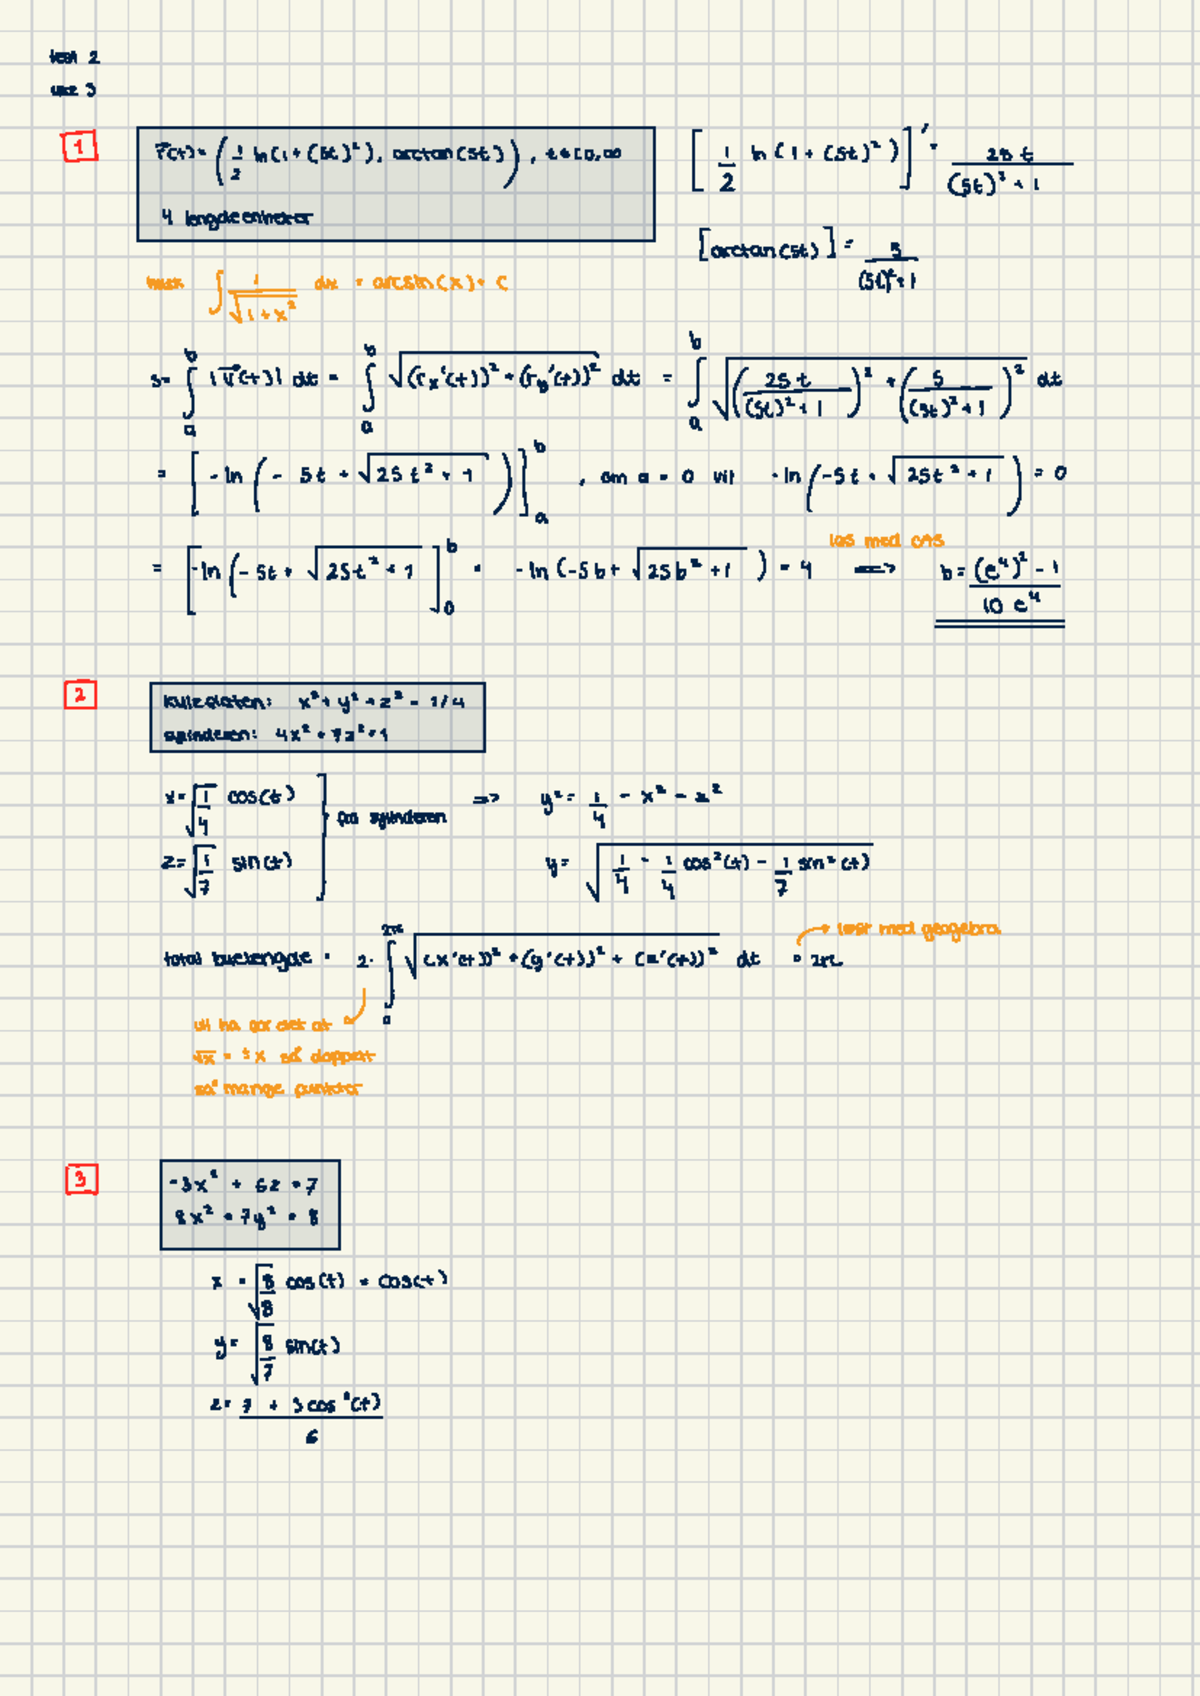 test 2
uke 3
1
r⃗(t) = (1/2 ln(1 + (5t)²), arctan(5t)), t ∈ [0, ∞
4 lengdeenheter
[1/2 ln(1 + (5t)²)]' = 25t/((5t)² + 1)
[arctan(5t)] = 5/((5t)² + 1)
husk ∫ 1/√(1 + x²) dx = arcsin(x) + C
s = ∫_a^b |v⃗(t)| dt = ∫_a^b √((r_x'(t))² + (r_y'(t))²) dt = ∫_a^b √((25t/((5t)² + 1))² + (5/((5t)² + 1))²) dt
= [-ln(-5t + √(25t² + 1))]_a^b , om a = 0 vil -ln(-5t + √(25t² + 1)) = 0
løs med CAS
= [-ln(-5t + √(25t² + 1)]_0^b = -ln(-5b + √(25b² + 1)) = 4 ==> b = ((e⁴)² - 1)/(10 e⁴)
2
kuleflaten: x² + y² + z² = 1/4
sylinderen: 4x² + 7z² = 1
x = √(1/4) cos(t)
z = √(1/7) sin(t)
fra sylinderen
=> y² = 1/4 - x² - z²
y = √(1/4 - 1/4 cos²(t) - 1/7 sin²(t))
løst med geogebra
total buelengde = 2 · ∫_0^{2π} √((x'(t))² + (y'(t))² + (z'(t))²) dt = 2π
vil ha gor det at
√x = ± x så dobbelt
så mange punkter
3
-3x² + 6z = 7
8x² + 7y² = 8
x = √(8/8) cos(t) = cos(t)
y = √(8/7) sin(t)
z = (7 + 3cos²(t))/6